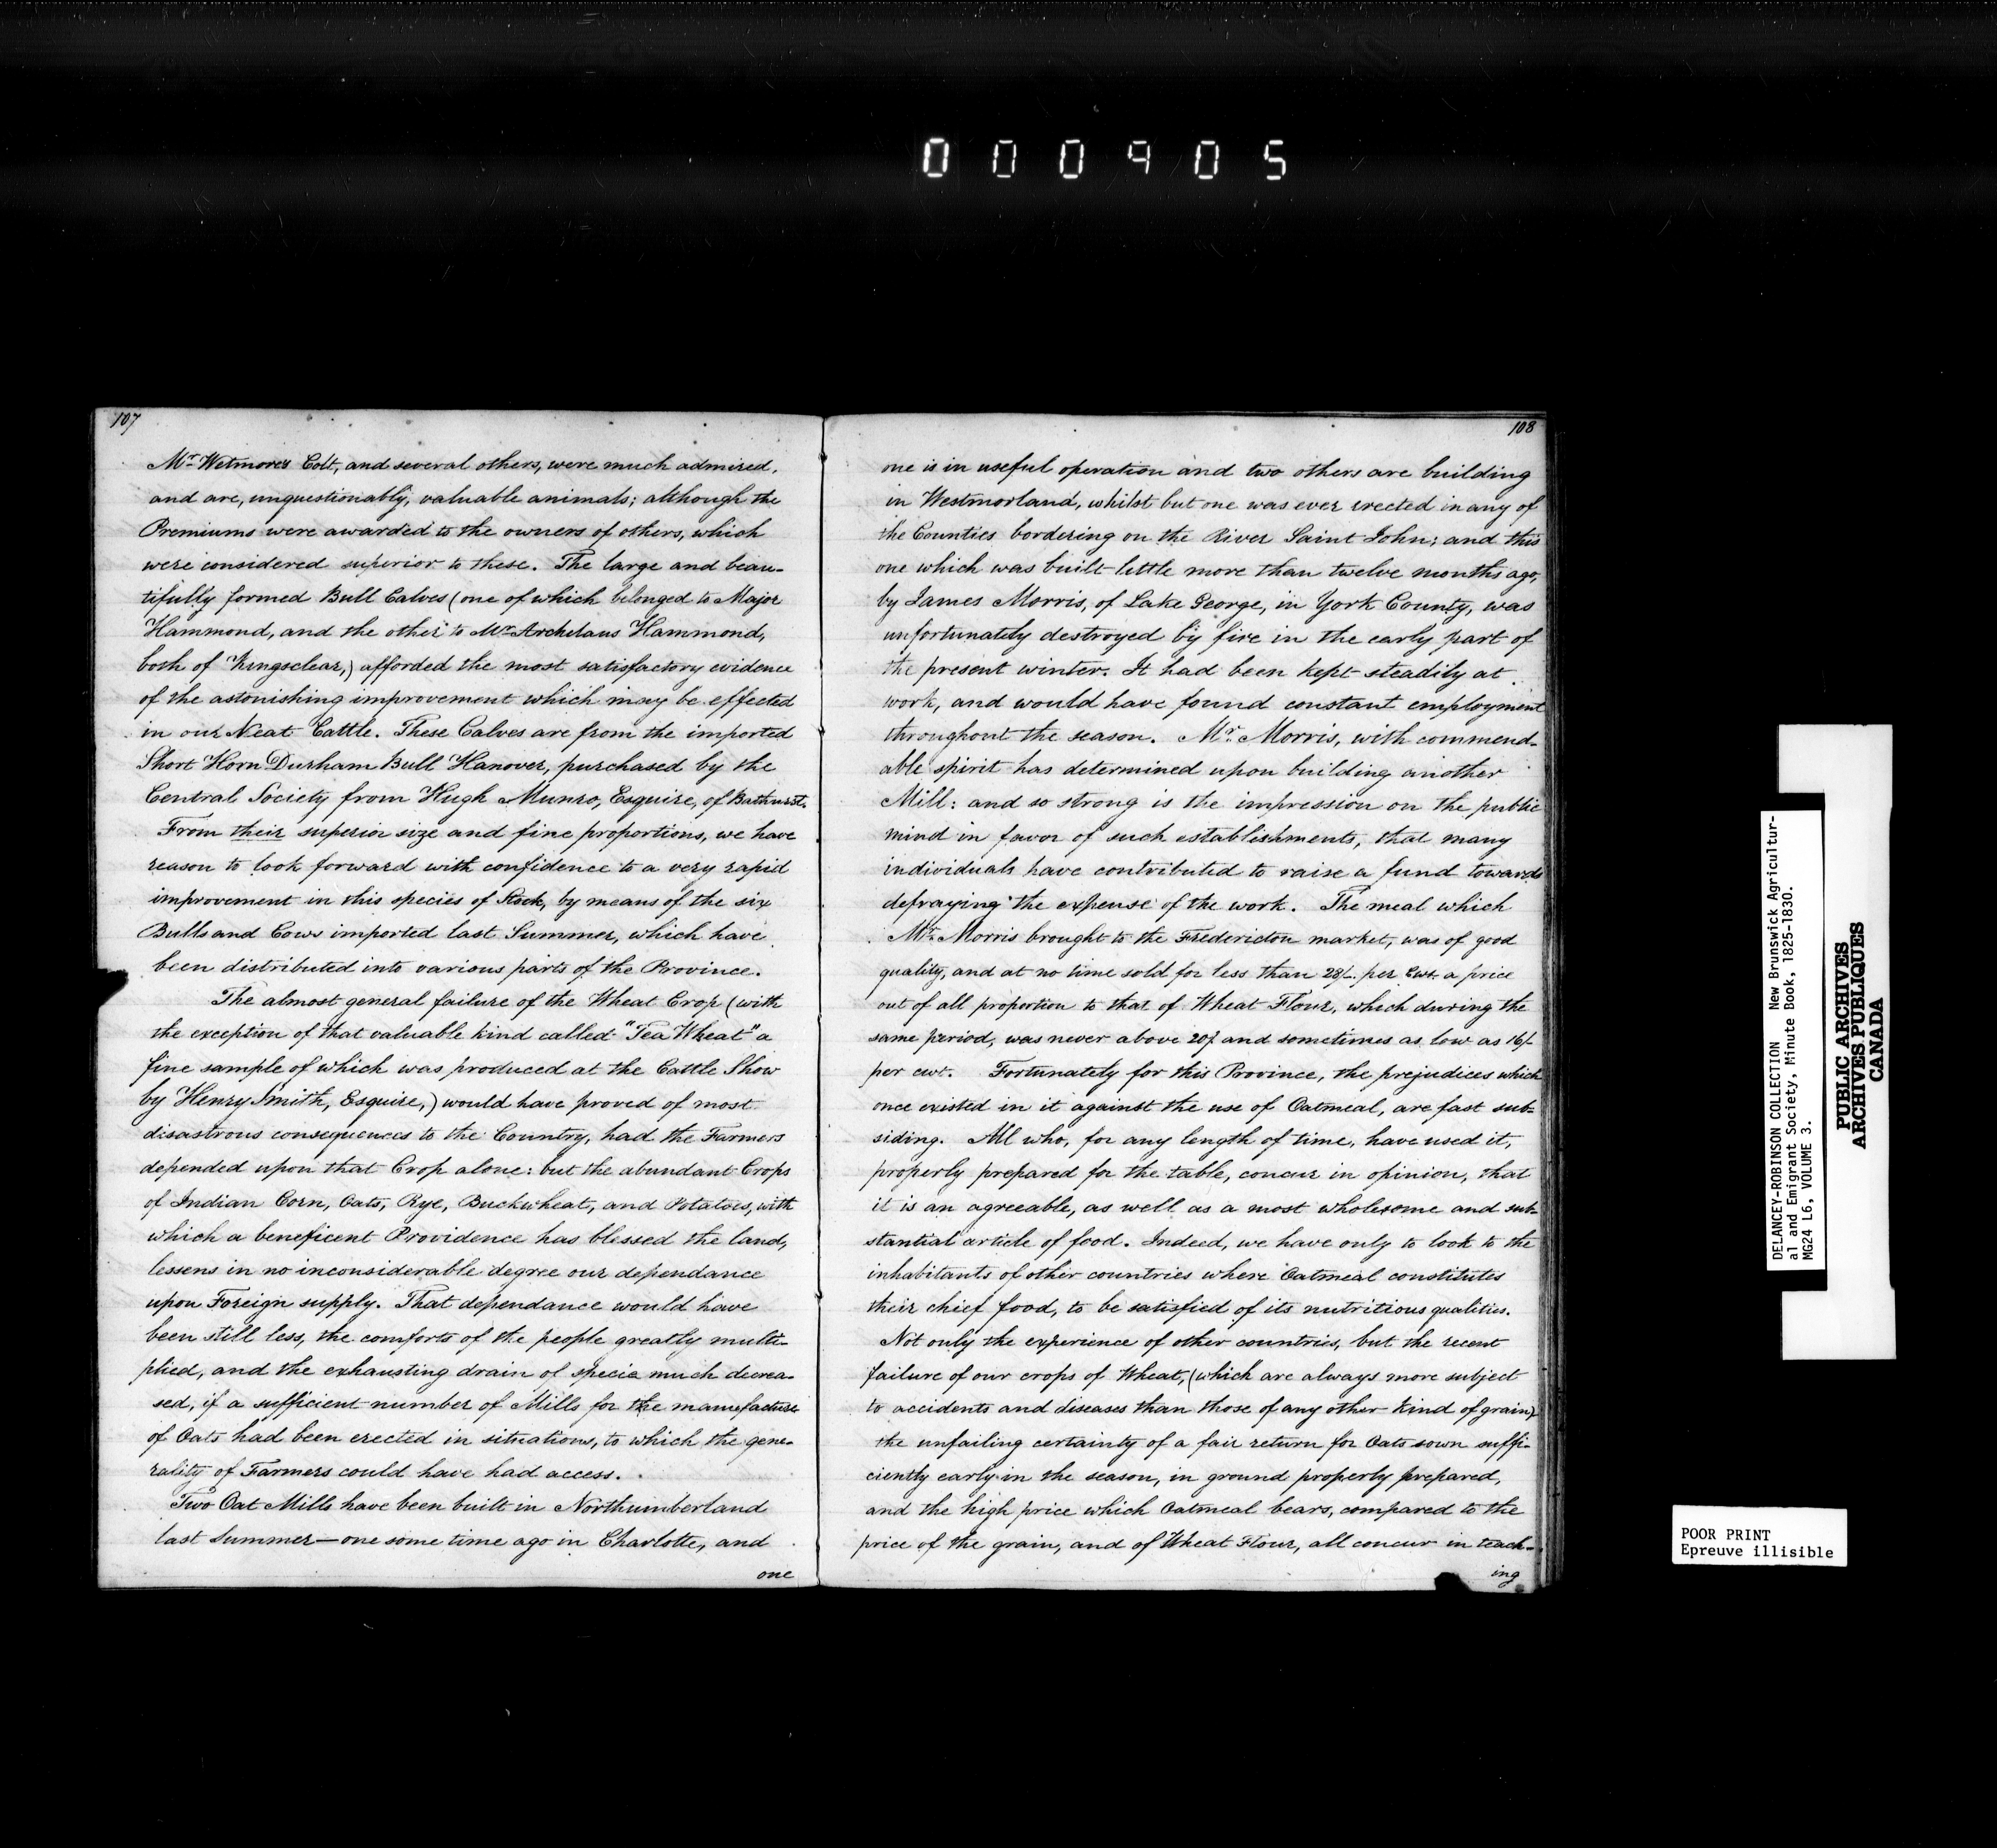 000905
107
Mr. Wetmore's Colt, and several others, were much admired,
and are, unquestionably, valuable animals; although the
Premiums were awarded to the owners of others, which
were considered superior to these. The large and beau-
tifully formed Bull Calves (one of which belonged to Major
Hammond, and the other to Mr. Archelaus Hammond,
both of Kingsclear,) afforded the most satisfactory evidence
of the astonishing improvement which may be effected
in our Neat Cattle. These Calves are from the imported
Short Horn Durham Bull Hanover, purchased by the
Central Society from Hugh Munro, Esquire, of Bathurst.
From their superior size and fine proportions, we have
reason to look forward with confidence to a very rapid
improvement in this species of Stock, by means of the six
Bulls and Cows imported last Summer, which have
been distributed into various parts of the Province.
The almost general failure of the Wheat Crop (with
the exception of that valuable kind called "Tea Wheat" a
fine sample of which was produced at the Cattle Show
by Henry Smith, Esquire,) would have proved of most
disastrous consequences to the Country, had the Farmers
depended upon that Crop alone: but the abundant Crops
of Indian Corn, Oats, Rye, Buckwheat, and Potatoes, with
which a beneficent Providence has blessed the land,
lessens in no inconsiderable degree our dependance
upon Foreign supply. That dependance would have
been still less, the comforts of the people greatly multi-
plied, and the exhausting drain of specie much decrea-
sed, if a sufficient number of Mills for the manufacture
of Oats had been erected in situations, to which the gene-
rality of Farmers could have had access.
Two Oat Mills have been built in Northumberland
last Summer—one some time ago in Charlotte, and
one
108
one is in useful operation and two others are building
in Westmorland, whilst but one was ever erected in any of
the Counties bordering on the River Saint John; and this
one which was built little more than twelve months ago,
by James Morris, of Lake George, in York County, was
unfortunately destroyed by fire in the early part of
the present winter. It had been kept steadily at
work, and would have found constant employment
throughout the season. Mr. Morris, with commend-
able spirit has determined upon building another
Mill: and so strong is the impression on the public
mind in favor of such establishments, that many
individuals have contributed to raise a fund towards
defraying the expense of the work. The meal which
Mr. Morris brought to the Fredericton market, was of good
quality, and at no time sold for less than 28/. per Cwt. a price
out of all proportion to that of Wheat Flour, which during the
same period, was never above 20/ and sometimes as low as 16/
per cwt. Fortunately for this Province, the prejudices which
once existed in it against the use of Oatmeal, are fast sub-
siding. All who, for any length of time, have used it,
properly prepared for the table, concur in opinion, that
it is an agreeable, as well as a most wholesome and sub-
stantial article of food. Indeed, we have only to look to the
inhabitants of other countries where Oatmeal constitutes
their chief food, to be satisfied of its nutritious qualities.
Not only the experience of other countries, but the recent
failure of our crops of Wheat, (which are always more subject
to accidents and diseases than those of any other kind of grain)
the unfailing certainty of a fair return for Oats sown suffi-
ciently early in the season, in ground properly prepared,
and the high price which Oatmeal bears, compared to the
price of the grain, and of Wheat Flour, all concur in teach-
ing
DELANCEY-ROBINSON COLLECTION New Brunswick Agricultur-
al and Emigrant Society, Minute Book, 1825-1830.
MG24 L6, VOLUME 3.
PUBLIC ARCHIVES
ARCHIVES PUBLIQUES
CANADA
POOR PRINT
Epreuve illisible